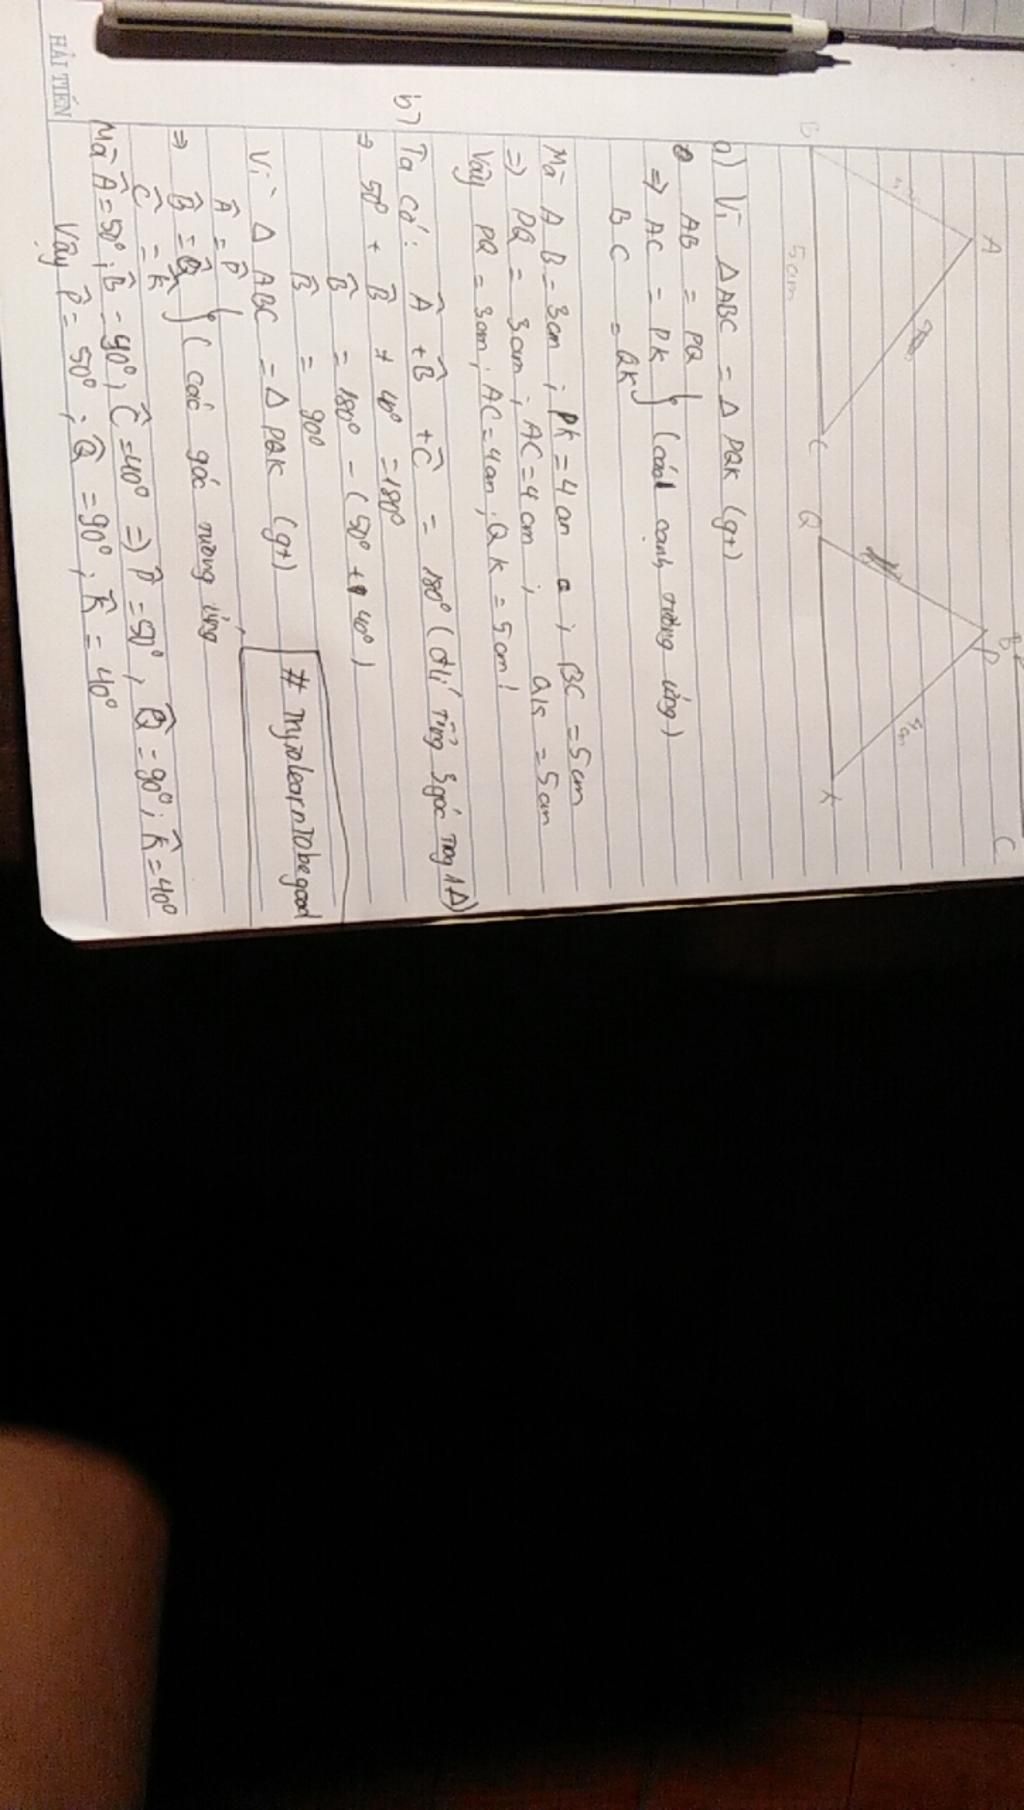 A
B
C
5cm
Q
P
K
B
C
a) Vì ΔABC = Δ PQK (gt)
AB = PQ
⇒ AC = PK } (các cạnh tương ứng)
BC = QK
Mà AB = 3cm ; PK = 4cm ; BC = 5cm
⇒ PQ = 3cm ; AC = 4cm ; QK = 5cm
Vậy PQ = 3cm ; AC = 4cm ; QK = 5cm!
b) Ta có: Â + B̂ + Ĉ = 180° (đ/lí tổng 3 góc trong 1 Δ)
⇒ 50° + B̂ + 40° = 180°
B̂ = 180° - (50° + 40°)
B̂ = 90°
Vì Δ ABC = Δ PQK (gt)
Â = P̂
⇒ B̂ = Q̂ } (các góc tương ứng
Ĉ = K̂
Mà Â = 50° ; B̂ = 90° ; Ĉ = 40° ⇒ P̂ = 50° , Q̂ = 90° ; K̂ = 40°
Vậy P̂ = 50° ; Q̂ = 90° ; K̂ = 40°
# TrytolearnTobegood
HẢI TIẾN